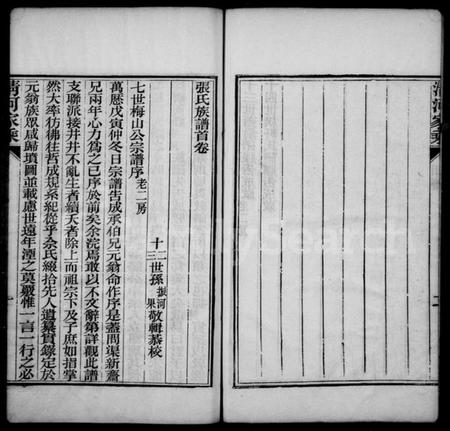 張氏族譜首卷
十二世孫振河敬輯
十三世孫 果恭校
七世梅山公宗譜序老二房
萬厯戊寅仲冬日宗譜告成承伯兄元翁命作序是蓋問渠新齋
兄兩年心力為之已序於前矣余浣焉敢以不文辭第詳觀此譜
支聯派接井井不亂生者續夭者除上而祖宗下及子庶如指掌
然大率彷彿往哲成規系紀從乎
元翁族眾咸歸墳圖並載慮世遠年湮之莫覈惟一言一行之必
清河家乘
清河家乘
FamilySearch